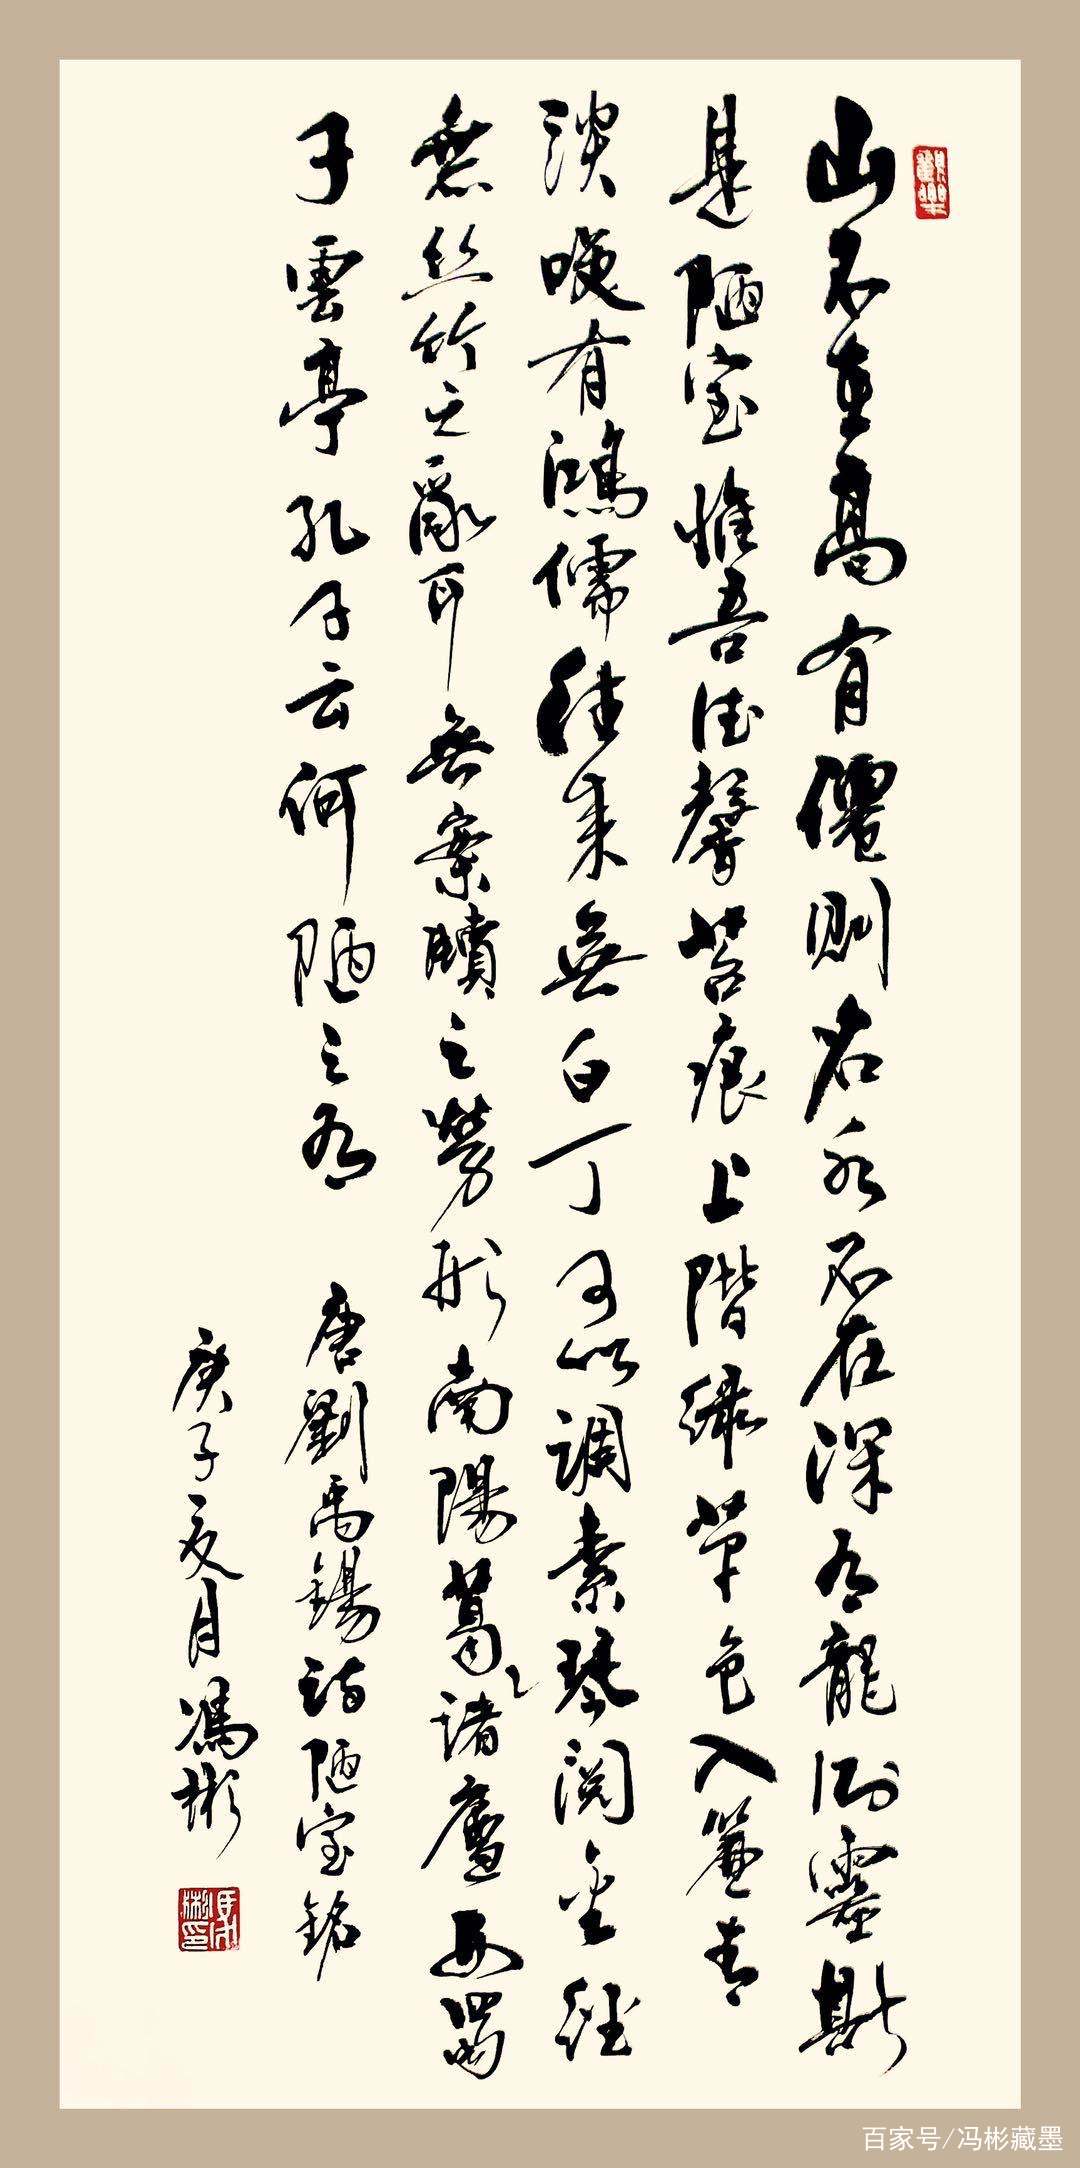 山不在高有僊則名水不在深有龍則靈斯
是陋室惟吾德馨苔痕上階綠草色入簾青
談咲有鴻儒往來無白丁可以調素琴閱金經
無絲竹之亂耳無案牘之勞形南陽葛諸廬西蜀
子雲亭孔子云何陋之有 唐劉禹錫詩陋室銘
庚子夏月馮彬
百家号/冯彬藏墨